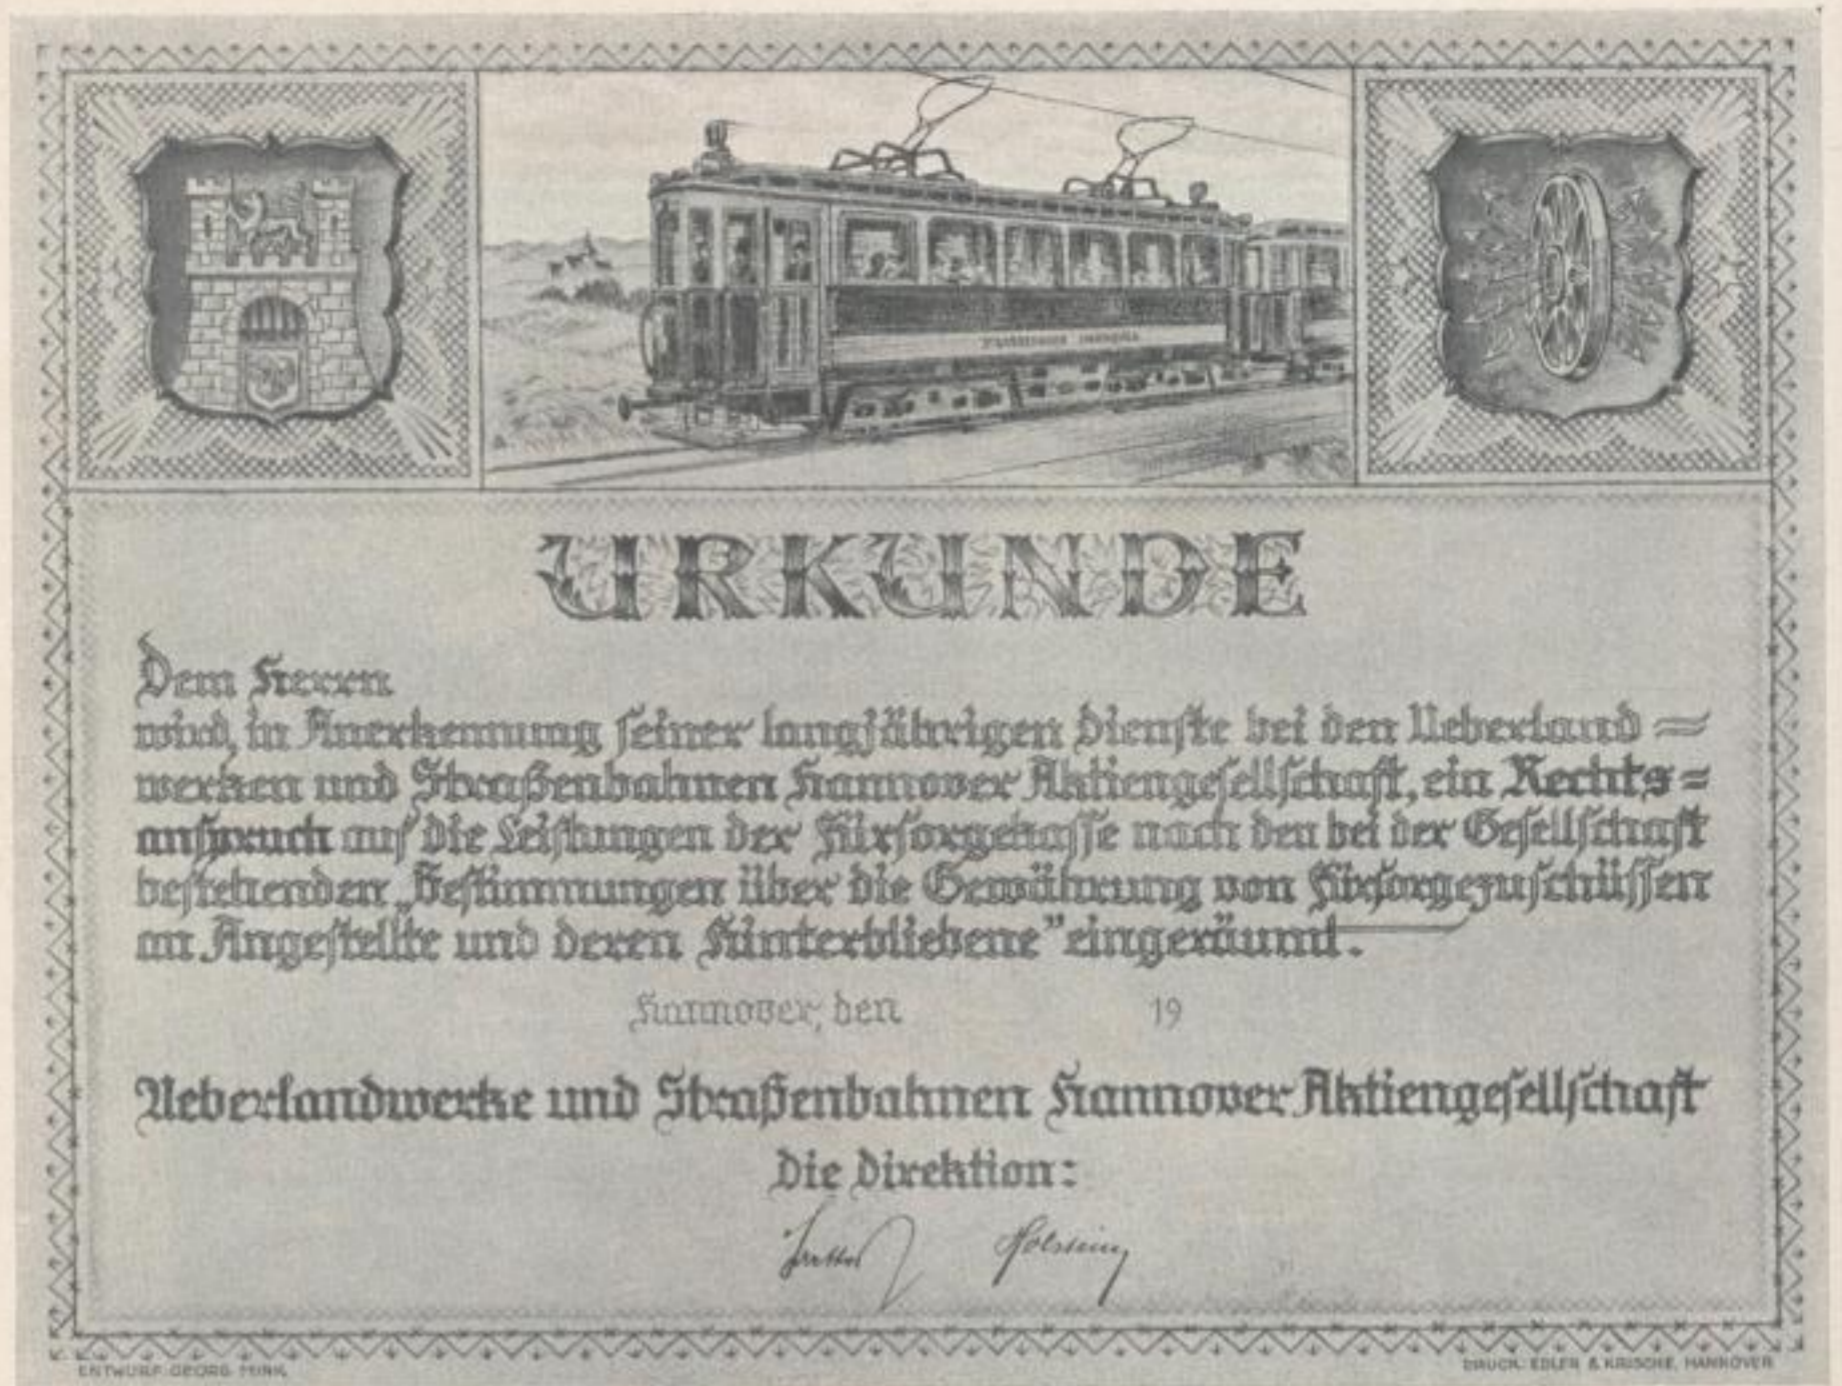 STRASSENBAHN HANNOVER
URKUNDE
Dem Herrn
wird, in Anerkennung seiner langjährigen Dienste bei den Ueberland=
werken und Straßenbahnen Hannover Aktiengesellschaft, ein Rechts=
anspruch auf die Leistungen der Fürsorgekasse nach den bei der Gesellschaft
bestehenden „Bestimmungen über die Gewährung von Fürsorgezuschüssen
an Angestellte und deren Hinterbliebene” eingeräumt.
Hannover, den 19
Ueberlandwerke und Straßenbahnen Hannover Aktiengesellschaft
Die Direktion:
Holstein
ENTWURF: GEORG MINK
DRUCK: EDLER & KRISCHE, HANNOVER